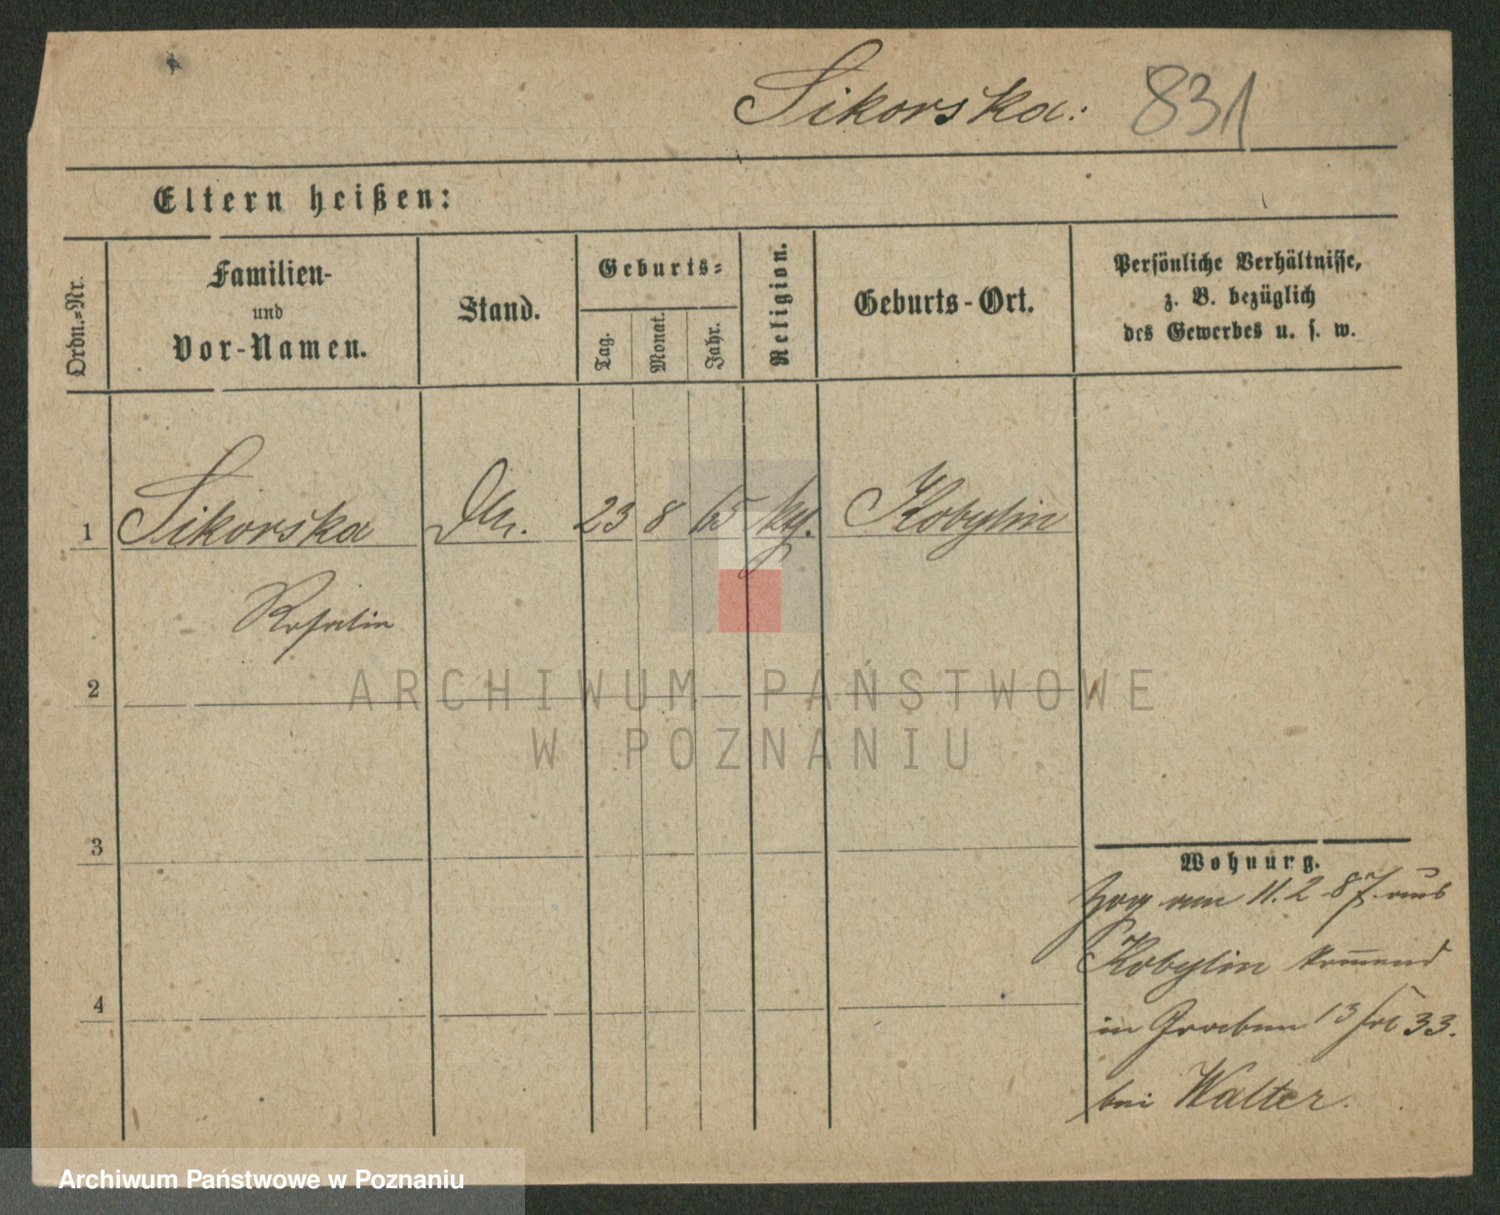 Sikorska: 831
Eltern heißen:
Ordn.=Nr.
Familien-
und
Vor-Namen.
Stand.
Geburts=
Tag.
Monat.
Jahr.
Religion.
Geburts-Ort.
Persönliche Verhältnisse,
z. B. bezüglich
des Gewerbes u. s. w.
1 Sikorska 23 8 65 Kobylin
Rosalin
2
ARCHIWUM PAŃSTWOWE
W POZNANIU
3
Wohnurg.
zog am 11.2 87. aus
Kobylin kommend
in Graben 13 33.
4
bei Walter.
Archiwum Państwowe w Poznaniu